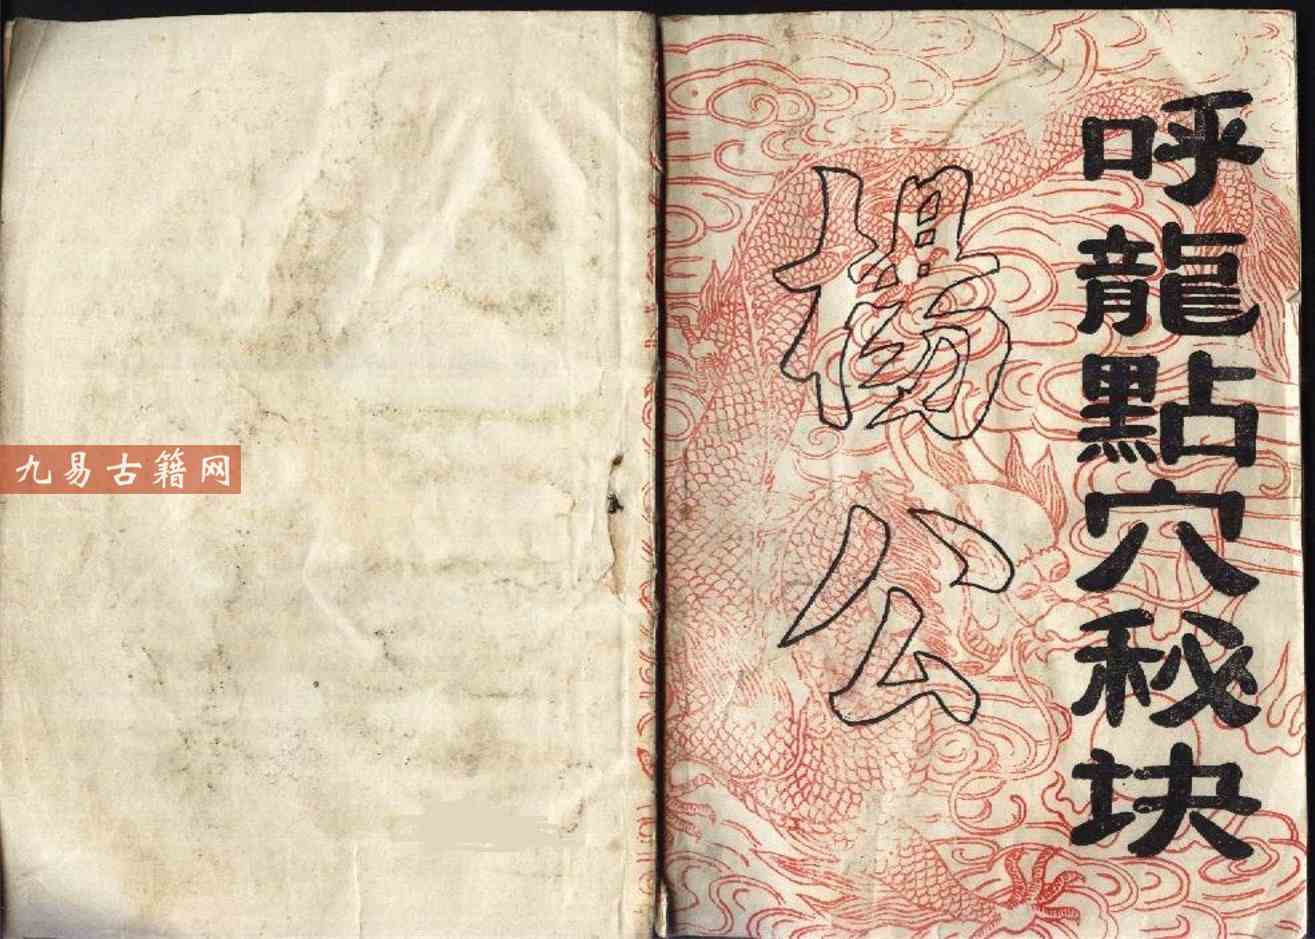 呼龍點穴秘块
楊公
九易古籍网